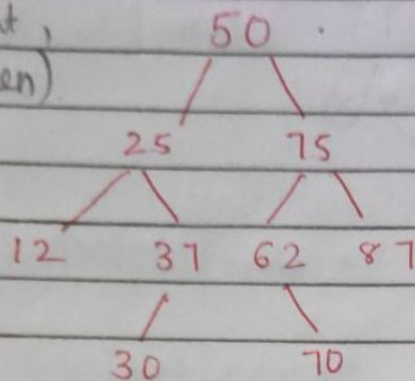 t,
50
en)
25 75
12 37 62 87
30 70